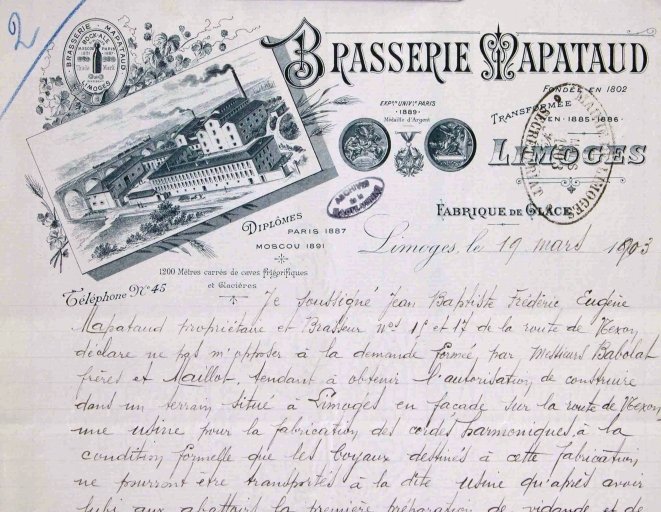 2
BRASSERIE MAPATAUD
ROCK-ALE
LIMOGES
BRASSERIE MAPATAUD
FONDÉE EN 1802
EXPON UNIVLLE PARIS
1889
Médaille d'Argent
TRANSFORMÉE
EN 1885-1886
LIMOGES
FABRIQUE DE GLACE
ARCHIVES
DE LA
HAUTE-VIENNE
DIPLÔMES
PARIS 1887
MOSCOU 1891
Limoges, le 19 mars 1903
1200 Mètres carrés de caves frigorifiques
et Glacières
Téléphone No 45
Je soussigné Jean Baptiste Frédéric Eugène
Mapataud propriétaire et Brasseur Nos 15 et 17 de la route de Nexon
déclare ne pas m'opposer à la demande formée par Messieurs Babolat
frères et Maillot, tendant à obtenir l'autorisation de construire
dans un terrain situé à Limoges en façade sur la route de Nexon
une usine pour la fabrication des cordes harmoniques, à la
condition formelle que les boyaux destinés à cette fabrication
ne pourront être transportés à la dite usine qu'après avoir
subi aux abattoirs la première préparation de vidange et de